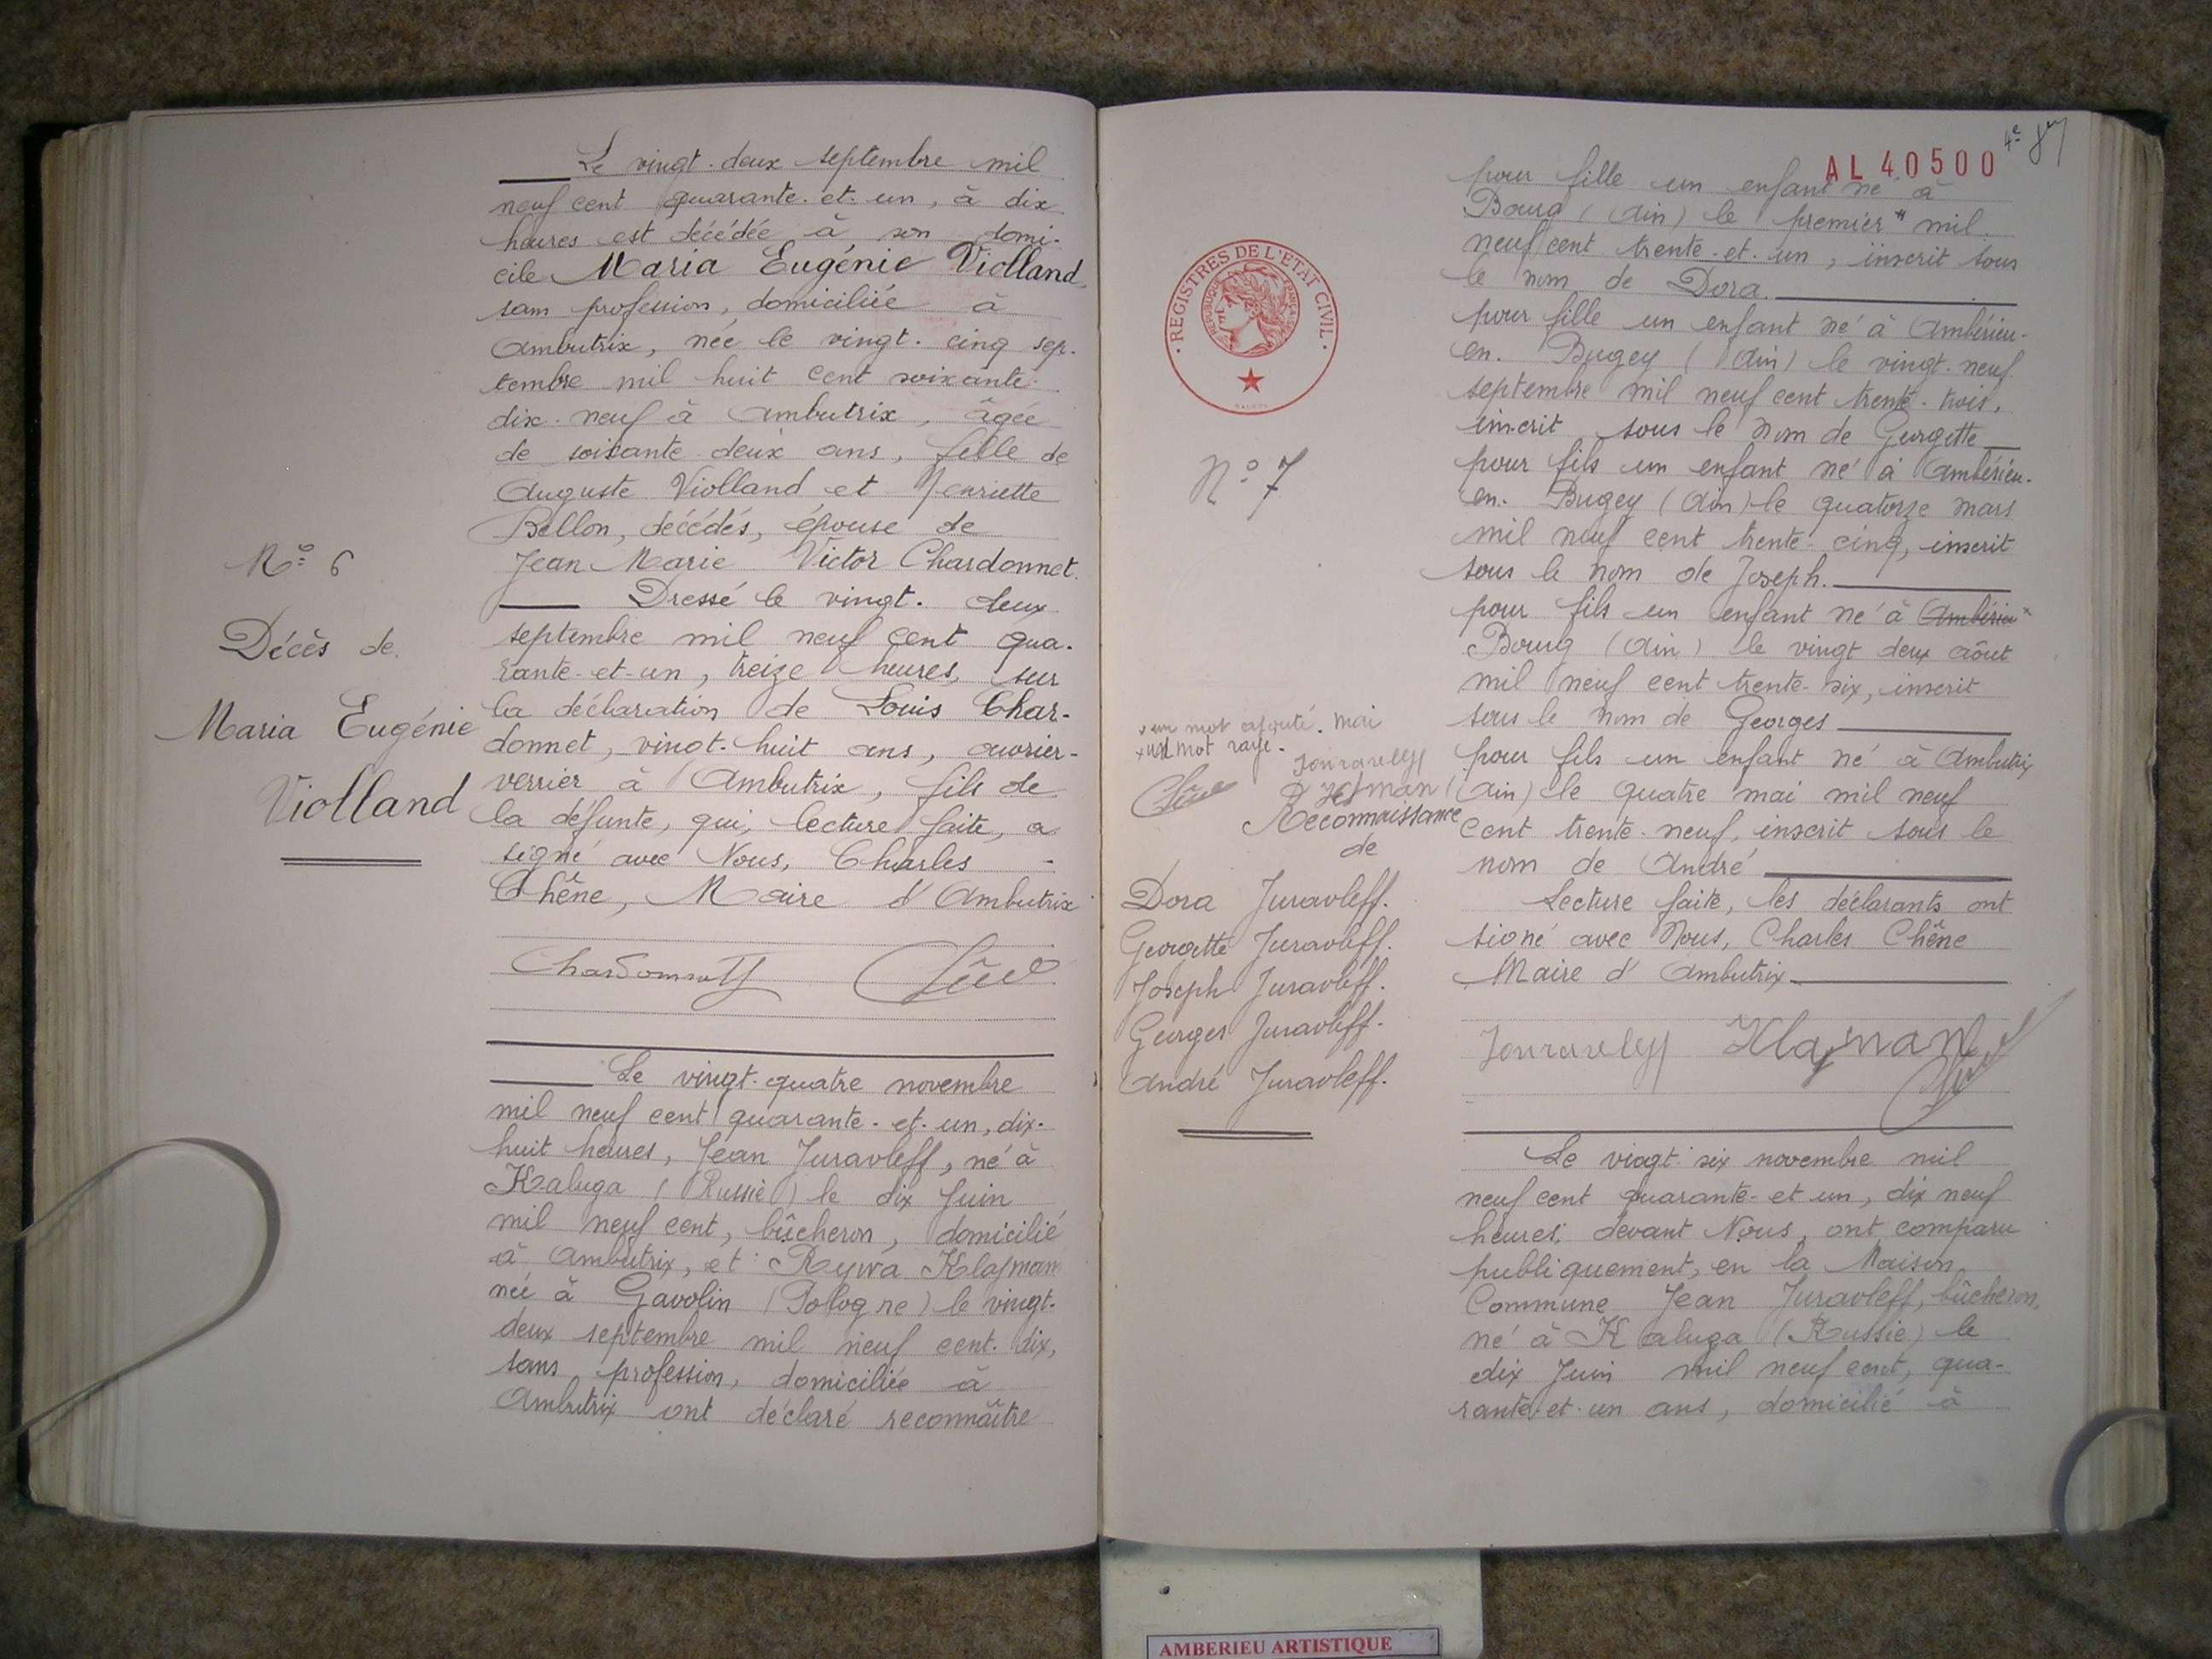 Le vingt-deux septembre mil
neuf cent quarante-et-un, à dix
heures est décédée à son domi-
cile Maria Eugénie Violland,
sans profession, domiciliée à
Ambutrix, née le vingt-cinq sep-
tembre mil huit cent soixante-
dix-neuf à Ambutrix, âgée
de soixante deux ans, fille de
Auguste Violland et Henriette
Bellon, décédés, épouse de
Jean Marie Victor Chardonnet.
Dressé le vingt-deux
septembre mil neuf cent qua-
rante-et-un, treize heures, sur
la déclaration de Louis Char-
donnet, vingt-huit ans, ouvrier-
verrier à Ambutrix, fils de
la défunte, qui, lecture faite, a
signé avec Nous, Charles
Chêne, Maire d'Ambutrix
Chardonnet Chêne
N° 6
Décès de
Maria Eugénie
Violland
Le vingt-quatre novembre
mil neuf cent quarante-et-un, dix-
huit heures, Jean Juravleff, né à
Kaluga (Russie) le dix Juin
mil neuf cent, bûcheron, domicilié
à Ambutrix, et Rywa Klajman
née à Gavolin (Pologne) le vingt-
deux septembre mil neuf cent-dix,
sans profession, domiciliée à
Ambutrix ont déclaré reconnaître
4e
AL 40500
pour fille un enfant né à
Bourg (Ain) le premier * mil
neuf cent trente-et-un, inscrit sous
le nom de Dora.
pour fille un enfant né à Ambérieu-
en-Bugey (Ain) le vingt-neuf
septembre mil neuf cent trente-trois,
inscrit sous le nom de Georgette
pour fils un enfant né à Ambérieu-
en-Bugey (Ain) le quatorze mars
mil neuf cent trente-cinq, inscrit
sous le nom de Joseph.
pour fils un enfant né à Ambérieu x
Bourg (Ain) le vingt deux août
mil neuf cent trente-six, inscrit
sous le nom de Georges
pour fils un enfant né à Ambutrix
(Ain) le quatre mai mil neuf
cent trente-neuf, inscrit sous le
nom de André
Lecture faite, les déclarants ont
signé avec Nous, Charles Chêne
Maire d'Ambutrix
Jouravleff Klajman Chêne
REGISTRES DE L'ETAT CIVIL
REPUBLIQUE FRANCAISE
N° 7
* un mot ajouté. mai
x un mot rayé.
Jouravleff
Chêne
Reconnaissance
de
Dora Juravleff.
Georgette Juravleff.
Joseph Juravleff.
Georges Juravleff.
André Juravleff.
Le vingt-six novembre mil
neuf cent quarante-et un, dix neuf
heures, devant Nous, ont comparu
publiquement, en la Maison
Commune Jean Juravleff, bûcheron,
né à Kaluga (Russie) le
dix Juin mil neuf cent, qua-
rante-et-un ans, domicilié à
AMBERIEU ARTISTIQUE